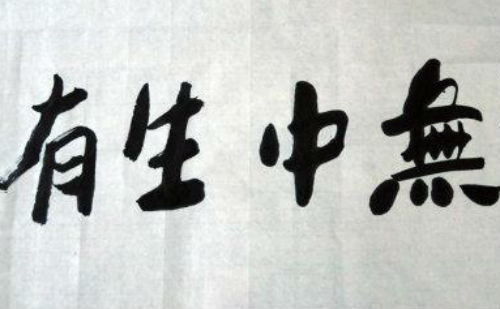 無中生有